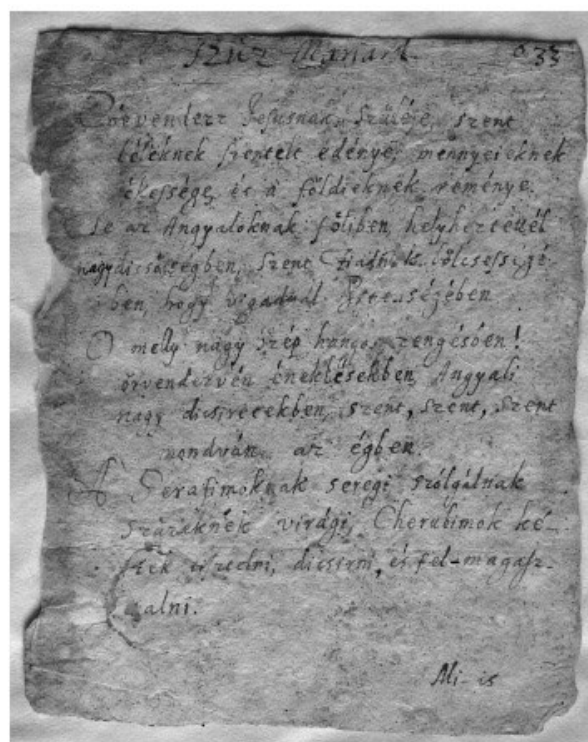 Szűz Mariarl 33
Örvendezz Jesusnak, Szüléje, szent
léleknek szentelt edénye, mennyeieknek
ékessége, és a földieknek reménye.
Te az Angyaloknak fölibe helyheztettél
nagy dicsősségben, Szent
ben, hogy vigadnál
O melly nagy szép hangos zengésben!
örvendezvén éneklésekben, Angyali
nagy dicsiretekben, szent, szent, szent
mondván az égben.
A Serafimoknak seregi szólgálnak
Szüzeknek virági, Cherubimok ké-
szek tisztelni, dicsirni, és fel-magasz-
talni.
Mi-is